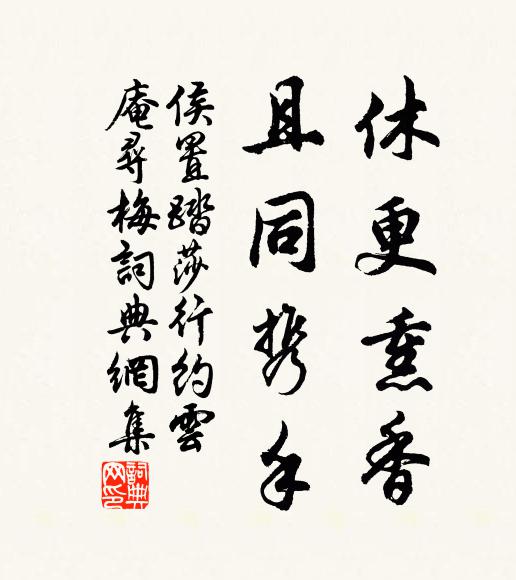 休更熏香
且同携手
侯置踏莎行约雲
庵尋梅詞典網集
詞典网印